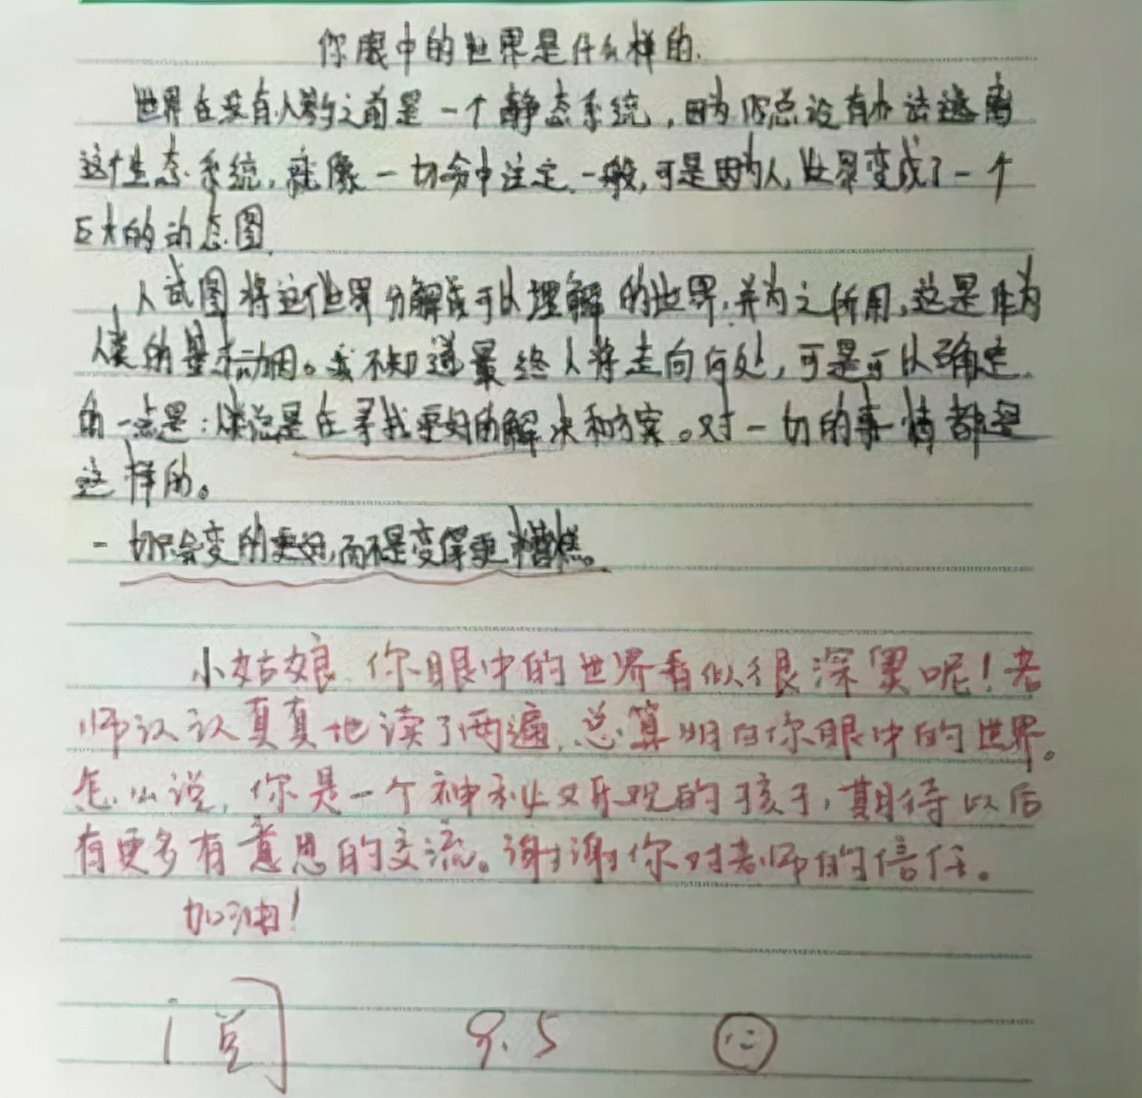 你眼中的世界是什么样的.
世界在没有人类之前是一个静态系统,因为你总没有办法逃离
这个生态系统,就像一切命中注定一般,可是因为人,世界变成了一个
巨大的动态图.
人试图将这个世界分解成可以理解的世界.并为之所用,这是作为
人类的基本动因。我不知道最终人将走向何处,可是可以确定
的一点是:人总是在寻找更好的解决和方案。对一切的事情都是
这样的。
一切只会变的更好,而不是变得更糟糕。
小姑娘,你眼中的世界看似很深奥呢!老
师认认真真地读了两遍,总算明白你眼中的世界。
怎么说,你是一个神秘又乐观的孩子,期待以后
有更多有意思的交流。谢谢你对老师的信任。
加油!
阅 9.5